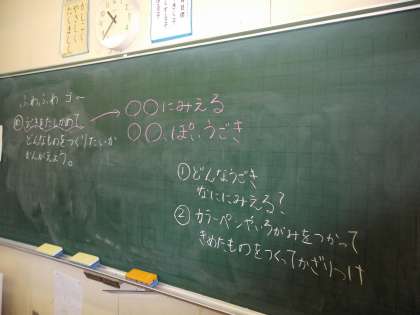 ふわふわ ゴー
め うごきをたしかめて
どんなものをつくりたいか
かんがえよう。
○○にみえる
○○っぽいうごき
① どんなうごき
なににみえる?
② カラーペンやいろがみをつかって
きめたものをつくってかざりつけ